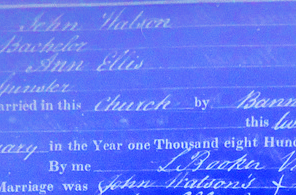 John Watson
Bachelor
Ann Ellis
arried in this Church by Bann
this
uary in the Year One Thousand eight Hund
By me L. Booker V
Marriage was John Watsons X